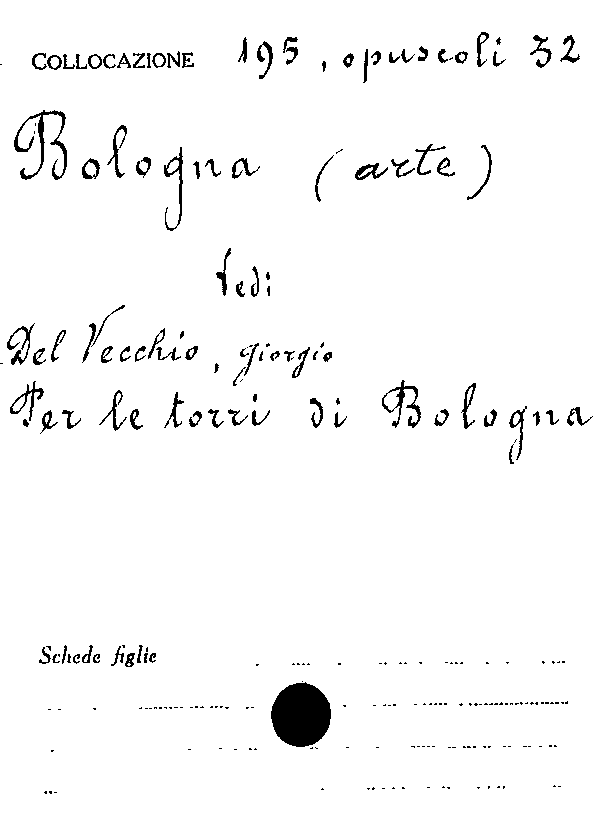 COLLOCAZIONE 195, opuscoli 32
Bologna (arte)
Vedi
Del Vecchio, Giorgio
Per le torri di Bologna
Schede figlie